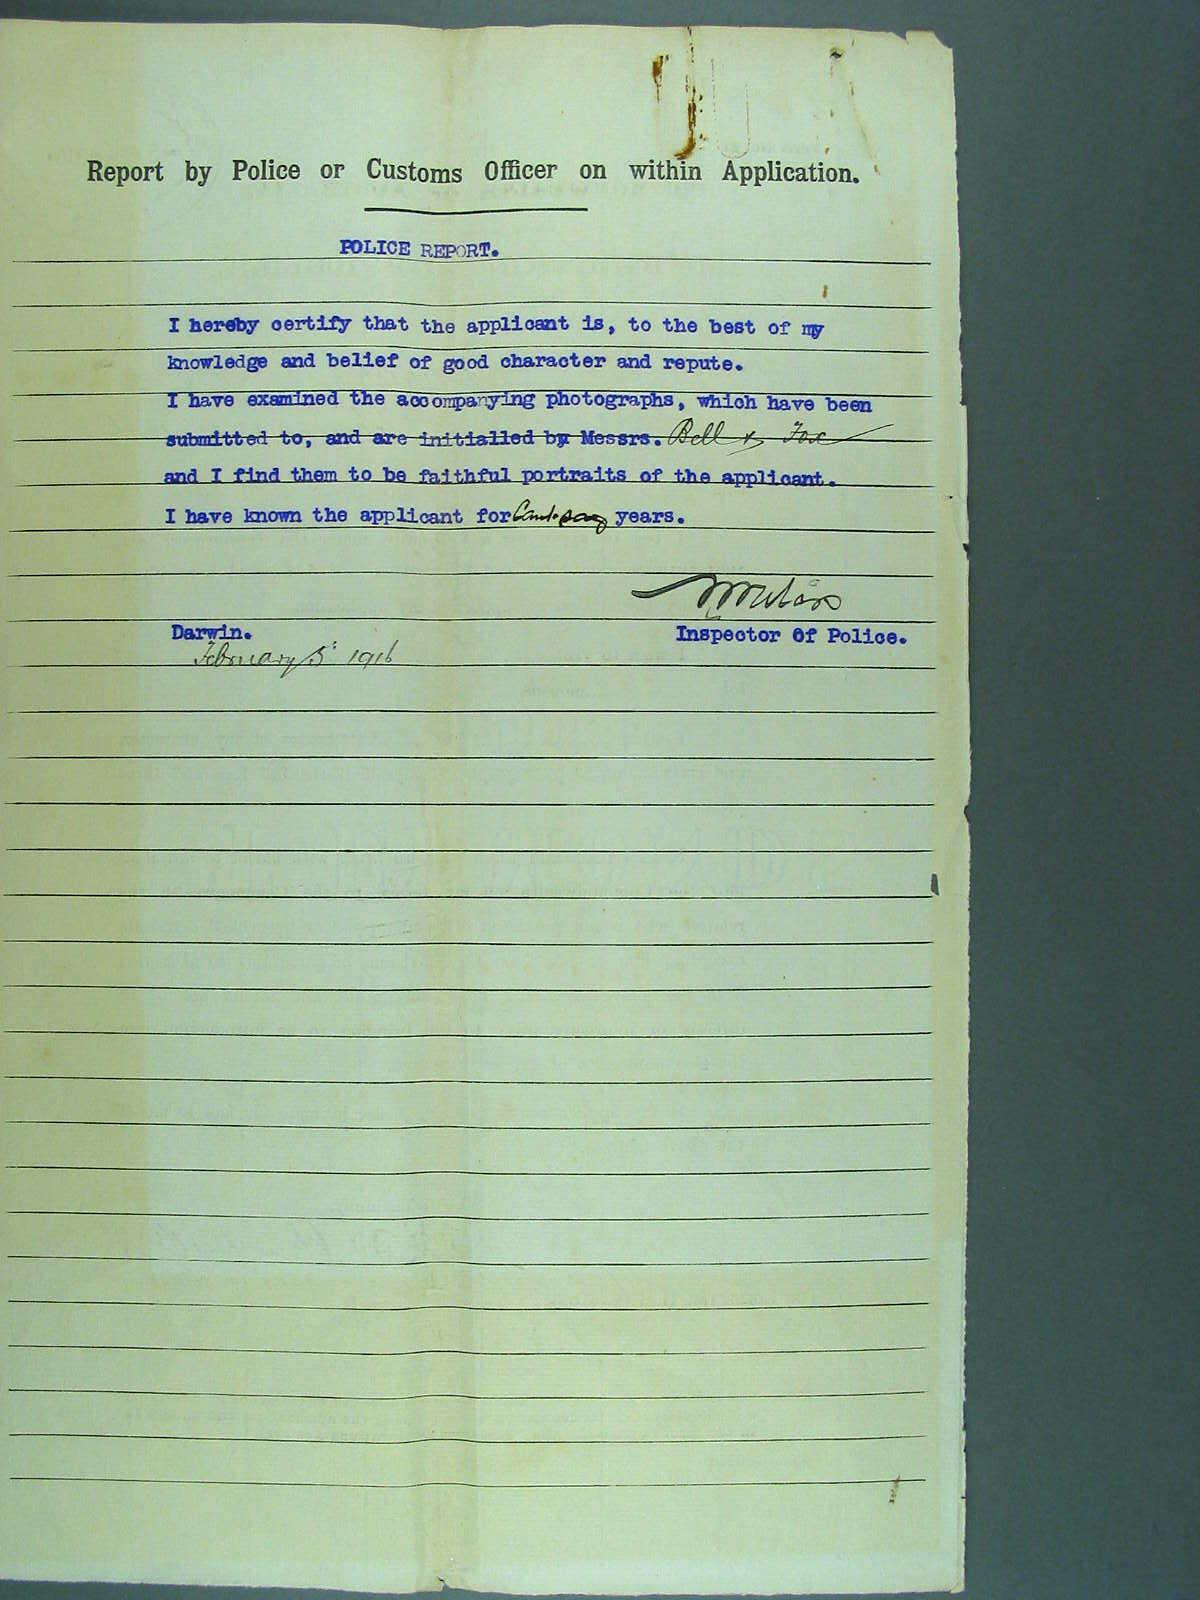 Report by Police or Customs Officer on within Application.
POLICE REPORT.
I hereby certify that the applicant is, to the best of my
knowledge and belief of good character and repute.
I have examined the accompanying photographs, which have been
submitted to, and are initialled by Messrs. Bell & Fox
and I find them to be faithful portraits of the applicant.
I have known the applicant for Cant say years.
Darwin.
Inspector Of Police.
February 5 1916